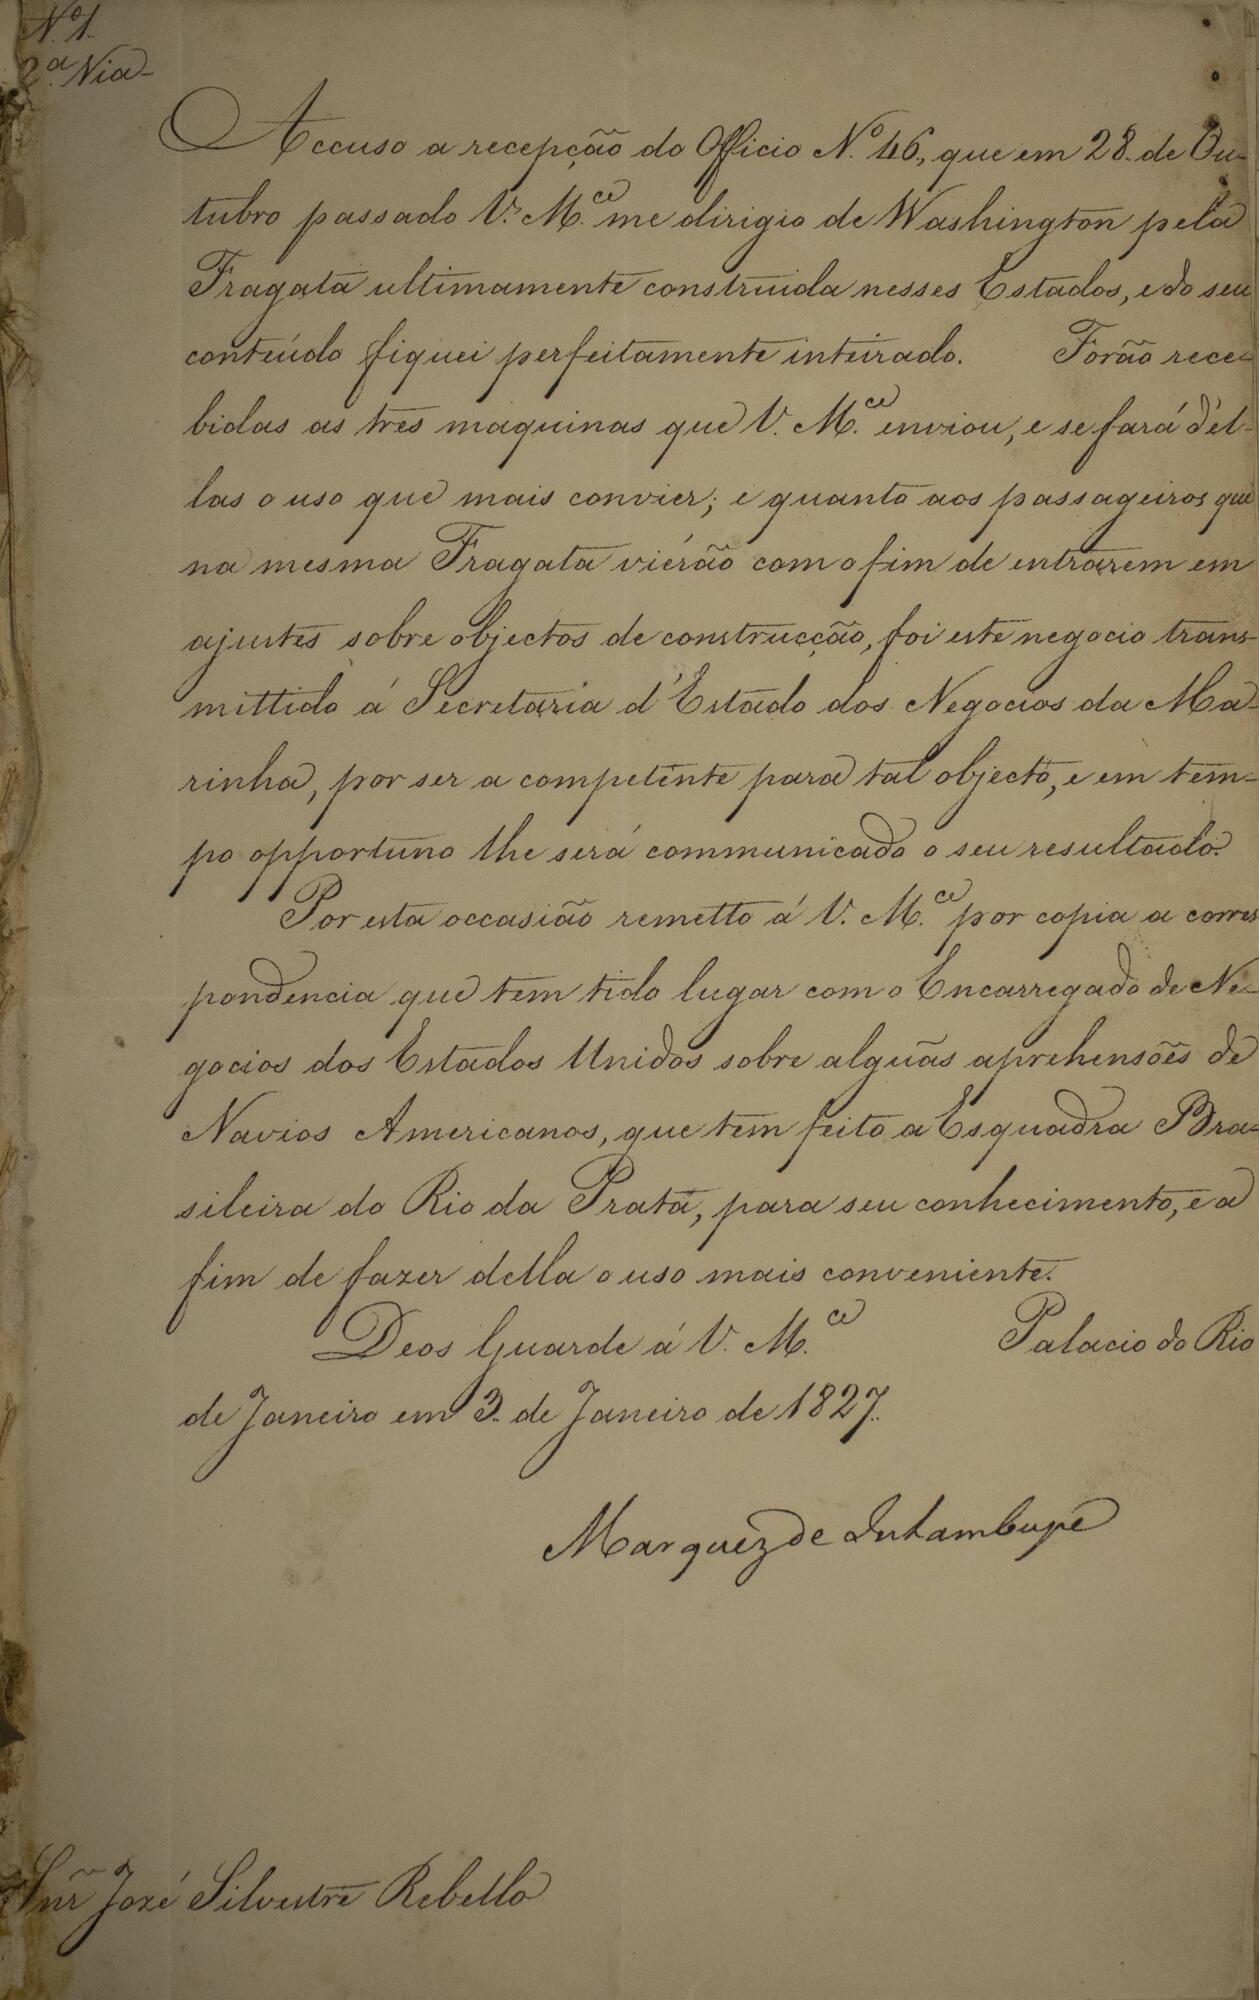 N.º 1.
2.ª Via
Accuso a recepção do Officio N.º 46., que em 28. de Ou-
tubro passado V. M.ce me dirigio de Washington pela
Fragata ultimamente construida nesses Estados, e do seu
conteúdo fiquei perfeitamente inteirado. Forão rece-
bidas as tres maquinas que V. M.ce enviou, e se fará d'el-
las o uso que mais convier; e quanto aos passageiros que
na mesma Fragata viérão com o fim de entrarem em
ajustes sobre objectos de construcção, foi este negocio trans-
mittido á Secretaria d'Estado dos Negocios da Ma-
rinha, por ser a competente para tal objecto, e em tem-
po opportuno lhe será communicado o seu resultado.
Por esta occasião remetto á V. M.ce por copia a corres
pondencia que tem tido lugar com o Encarregado de Ne-
gocios dos Estados Unidos sobre alguãs aprehensões de
Navios Americanos, que tem feito a Esquadra Bra-
sileira do Rio da Prata, para seu conhecimento, e a
fim de fazer della o uso mais conveniente.
Deos Guarde á V. M.ce Palacio do Rio
de Janeiro em 3. de Janeiro de 1827.
Marquez de Inhambupe
Snr José Silvestre Rebello